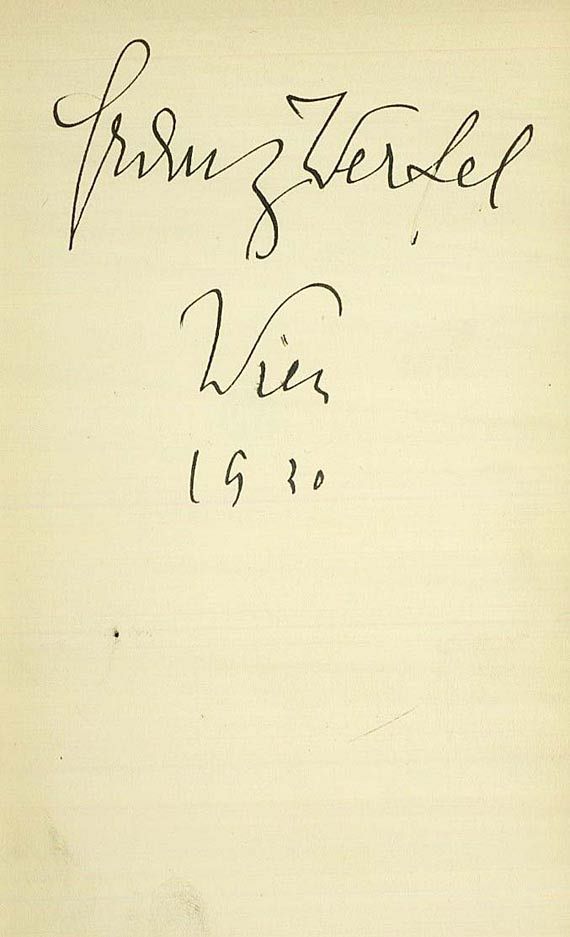 Franz Werfel
Wien
1930